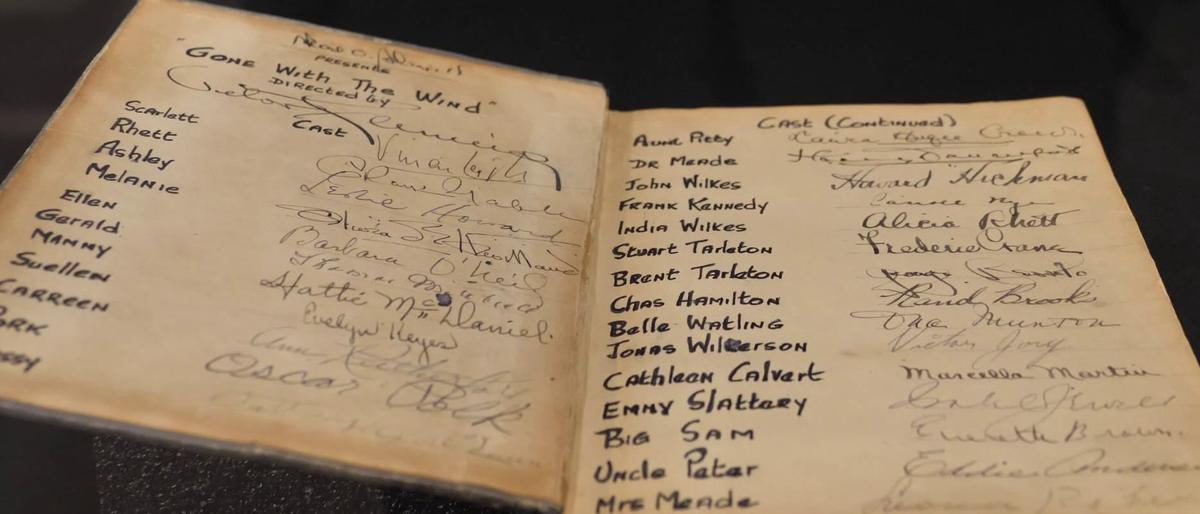 PRESENTS
"GONE WITH THE WIND"
DIRECTED BY
Victor Fleming
CAST
Scarlett Vivian Leigh
Rhett Clark Gable
Ashley Leslie Howard
Melanie Olivia de Havilland
Ellen Barbara O'Neil
Gerald Thomas Mitchell
Mammy Hattie McDaniel
Suellen Evelyn Keyes
Carreen Ann Rutherford
ork Oscar Polk
ssy
CAST (CONTINUED)
Aunt Pitty Laura Hope Crews
Dr Meade Harry Davenport
John Wilkes Howard Hickman
Frank Kennedy Carroll Nye
India Wilkes Alicia Rhett
Stuart Tarleton Frederic Crane
Brent Tarleton
Chas Hamilton Rand Brooks
Belle Watling Ona Munson
Jonas Wilkerson Victor Jory
Cathleen Calvert Marcella Martin
Emmy Slattery Isabel Jewell
Big Sam Everett Brown
Uncle Peter Eddie Anderson
Mrs Meade